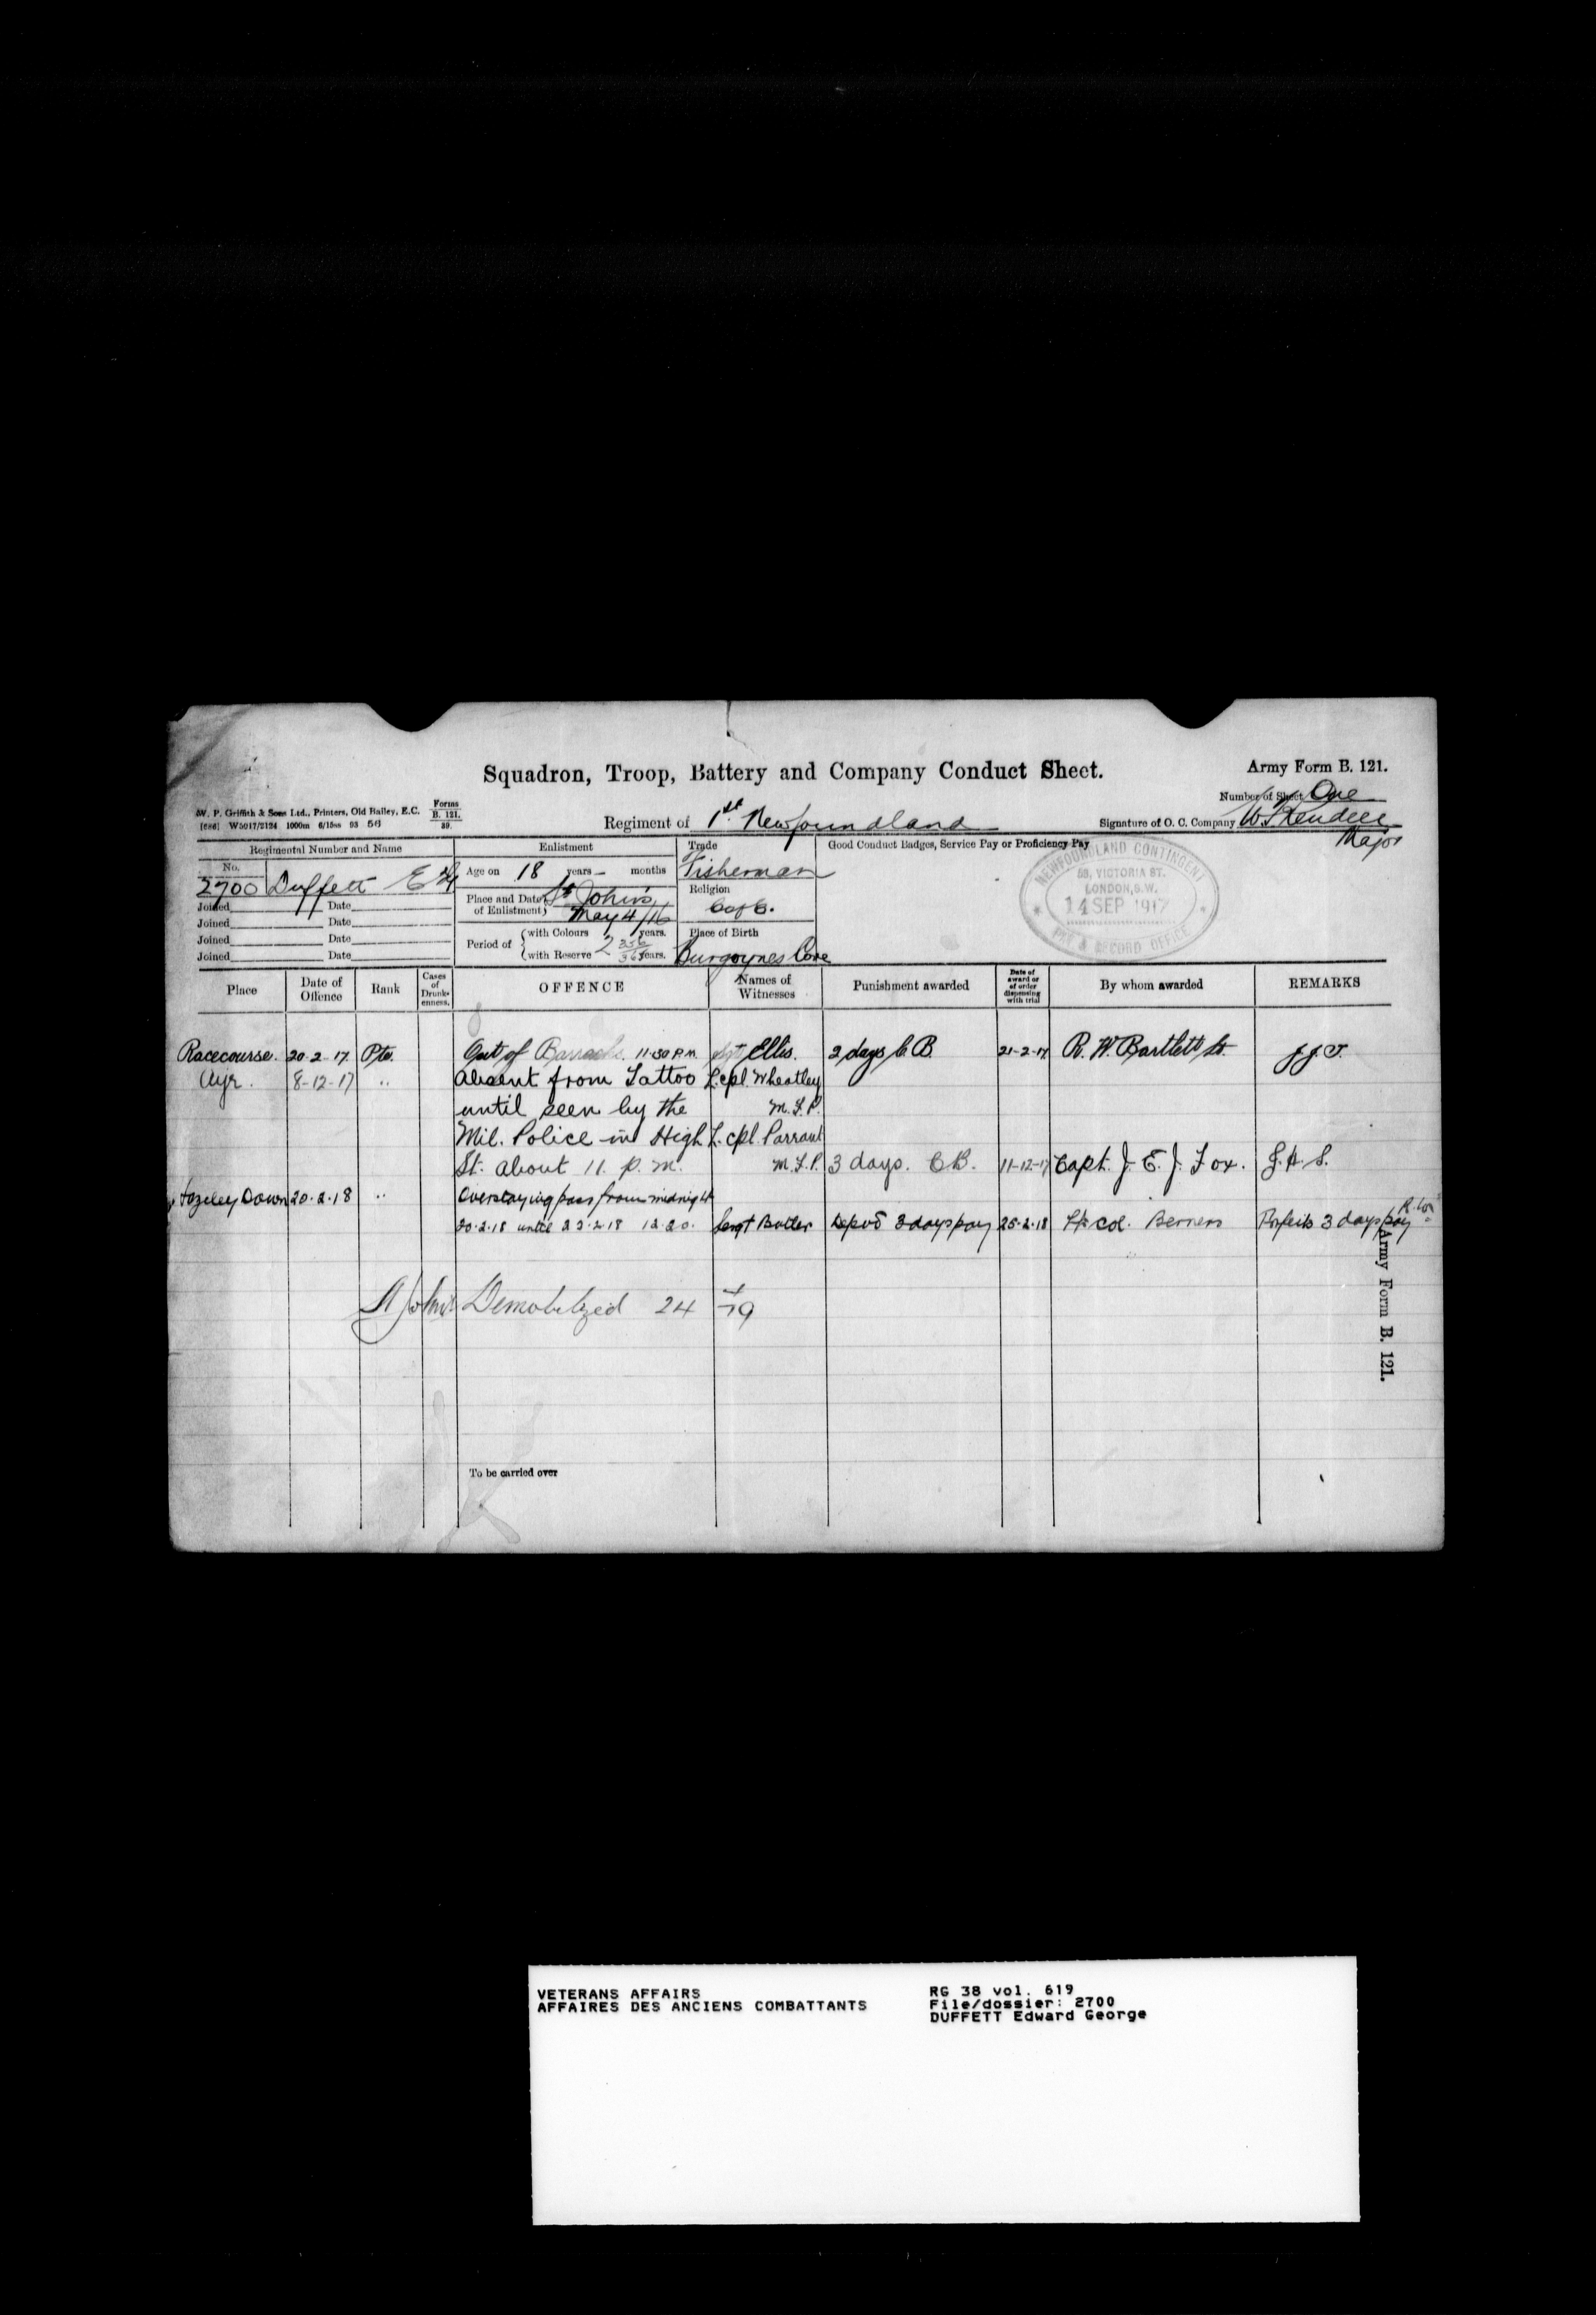 Squadron, Troop, Battery and Company Conduct Sheet.
Army Form B. 121.
Number of Sheet One
W. P. Griffith & Sons Ltd., Printers, Old Bailey, E.C.
Forms B. 121. 39.
[686] W5017/2124 1000m 6/15ss 93 56
Regiment of 1st Newfoundland
Signature of O. C. Company W. Rendell
Major
Regimental Number and Name
Enlistment
Trade
Good Conduct Badges, Service Pay or Proficiency Pay
No.
2700 Duffett E G
Age on 18 years — months
Fisherman
Religion
C of E.
Joined Date
Joined Date
Joined Date
Joined Date
Place and Date of Enlistment St John's, May 4/16
Period of with Colours years.
with Reserve years.
Place of Birth
Burgoynes Cove
NEWFOUNDLAND CONTINGENT
58, VICTORIA ST.
LONDON, S.W.
14 SEP 1917
PAY & RECORD OFFICE
Place
Date of Offence
Rank
Cases of Drunkenness.
OFFENCE
Names of Witnesses
Punishment awarded
Date of award or of order dispensing with trial
By whom awarded
REMARKS
Racecourse. 20-2-17. Pte. Out of Barracks. 11-30 P.M. Sgt Ellis. 2 days C.B. 21-2-17 R. W. Bartlett Lt.
Ayr. 8-12-17 " Absent from Tattoo L.cpl. Wheatley
until seen by the M.F.P.
Mil. Police in High L. cpl. Parrant
St. about 11. p.m. M.F.P. 3 days. C.B. 11-12-17 Capt. J. E. J. Fox. J. H. S.
Hazeley Down 20-2-18 " Overstaying pass from midnight
20-2-18 until 23-2-18 12.20. Sergt Butler Depvd 3 days pay 25-2-18 Lt. Col. Berners Forfeits 3 days pay
St John's Demobilized 24 4/19
Army Form B. 121.
To be carried over
VETERANS AFFAIRS
AFFAIRES DES ANCIENS COMBATTANTS
RG 38 vol. 619
File/dossier: 2700
DUFFETT Edward George